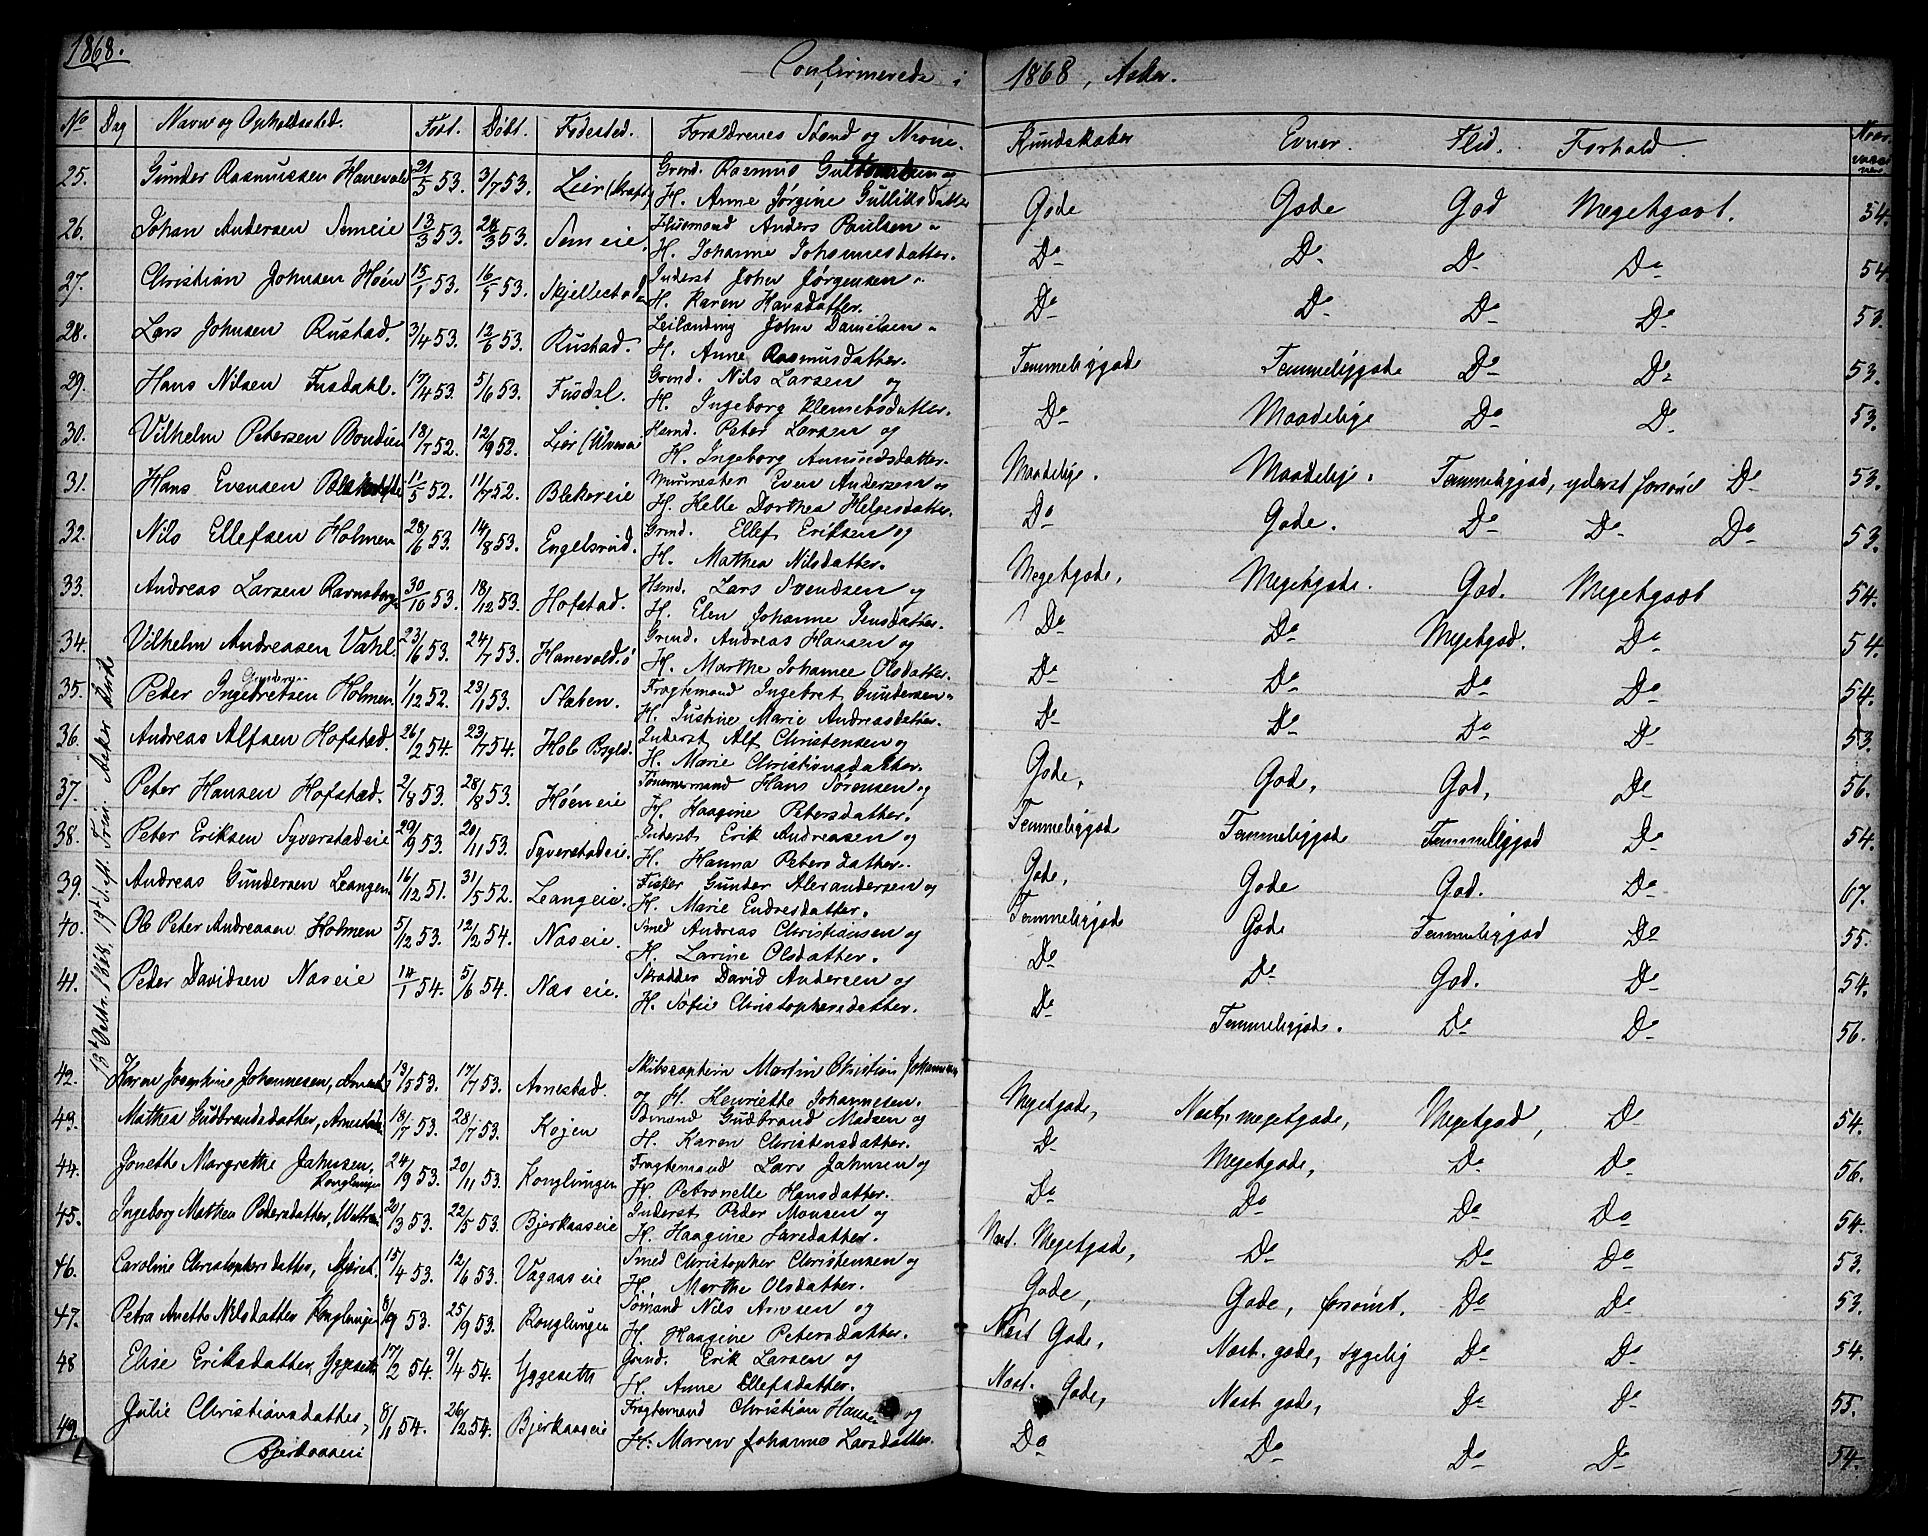 1868.
Confirmerede i 1868, Asker.
No Dag Navn og Opholdssted. Født. Døbt. Fødested. Forældrenes Stand og Navne. Kundskaber Evner. Flid. Forhold.
25. Gunder Rasmussen Hanevold 21/5 53. 3/7 53. Lier Grmd. Rasmus og
H. Anne Jørgine Gulliksdatter Gode Gode God Megetgodt. 54.
26. Johan Andersen Semeie 13/3 53. 28/3 53. Semeie. Huusmand Anders Paulsen
H. Johanne Johannesdatter. Do Do Do Do 54
27. Christian Johnsen Høen 15/1 53. 16/5 53. Skjellestad Inderst John Jørgensen
H. Karen Hansdatter. Do Do Do Do 53.
28. Lars Johnsen Rustad. 3/4 53. 12/6 53. Rustad. Leilænding John Danielsen
H. Anne Rasmusdatter. Temmeliggode Temmeliggode Do Do 53.
29. Hans Nilsen Fusdahl. 17/4 53. 5/6 53. Fusdal. Grmd. Nils Larsen og
H. Ingeborg Klemetsdatter. Do Maadelige Do Do 53.
30. Vilhelm Petersen Bondien 18/7 52. 12/9 52. Lier Hsmd. Peter Larsen og
H. Ingeborg Amundsdatter. Maadelige. Maadelige. Temmeliggod, yderst forsømt Do 53.
31. Hans Evensen 11/5 52. 11/7 52. Blekereie Murmester Even Andersen
H. Helle Dorthea Helgesdatter. Do Gode. Do Do Do 53.
32. Nils Ellefsen Holmen 28/6 53. 14/8 53. Engelsrud. Grmd. Ellef Eriksen og
H. Mathea Nilsdatter. Megetgode, Megetgode. God. Megetgodt 54.
33. Andreas Larsen Ravnsborg 30/10 53. 18/12 53. Hofstad. Hsmd. Lars Svendsen og
H. Elen Johanne Jensdatter. Do Do Megetgod. Do 54.
34. Vilhelm Andreassen Vahl 23/6 53. 24/7 53. Hanevold Grmd. Andreas Hansen og
H. Marthe Johanne Olsdatter. Do Do Do Do 54.
35. Peder Ingebretsen Holmen 1/12 52. 23/1 53. Slaben. Fragtemand Ingebret Gundersen
H. Justine Marie Andreasdatter. Do Do Do Do 53.
36. Andreas Alfsen Hofstad. 26/2 54. 23/7 54. Hol Inderst Alf Christensen og
H. Marie Christiansdatter. Gode, Gode, God, Do 56.
37. Peter Hansen Hofstad. 2/8 53. 28/8 53. Høeneie Hans Sørensen og
H. Haagine Petersdatter. Temmeliggod Temmeliggode Temmeliggod Do 54.
38. Peter Eriksen Syverstadeie 29/9 53. 20/11 53. Syverstadeie. Inderst Erik Andreasen og
H. Hanna Petersdatter. Gode, Gode God. Do 67.
39. Andreas Gundersen Leangen 16/12 51. 31/5 52. Leangeie. Fisker Gunder Alexandersen og
H. Marie Endresdatter. Temmeliggod Gode Temmeliggod Do 55.
40. Ole Peter Andreasen Holmen 5/12 53. 12/2 54. Næseie. Smed Andreas Christiansen og
H. Larine Olsdatter. Do Do God. Do 54.
41. Peder Davidsen Næseie 14/1 54. 5/6 54. Næseie. Skrædder David Andersen og
H. Sofie Christophersdatter. Do Temmeliggode. Do Do 56.
18d Octbr. 1868, 19d S. e. Trin. i Asker Kirke
42. Karen Josephine Johannesen, 13/5 53. 17/7 53. Arnestad. Skibscaptein Martin Christian Johannesen
og H. Henriette Johannesen. Megetgode, Næst megetgode, Megetgod, Do 54.
43. Mathea Gudbrandsdatter, Arnestad 18/7 53. 28/7 53. Kojen Gudbrand Madsen og
H. Karen Christensdatter. Do Megetgode, Do Do 56.
44. Jonette Margrethe Jahnsen, 24/9 53. 20/11 53. Konglungen Fragtemand Lars Jahnsen og
Konglungen H. Petronelle Hansdatter. Do Do Do Do 54.
45. Ingeborg Mathea Pedersdatter, 20/3 53. 22/5 53. Bjerkaaseie Inderst Peder Monsen og
H. Haagine Larsdatter. Næst. Megetgode, Do Do Do 53.
46. Caroline Christophersdatter, 15/4 53. 12/6 53. Vagaaseie Smed Christopher Christensen og
H. Marthe Olsdatter. Gode, Gode, forsømt. Do Do 53.
47. Petra Anette Nilsdatter Konglungen 8/9 53. 25/9 53. Konglungen Sømand Nils Arnesen og
H. Haagine Petersdatter. Næst Gode, Næst. gode, sygelig Do Do 54.
48 Elise Eriksdatter, Yggeseth 17/2 54. 9/4 54. Yggeseth Grmd. Erik Larsen og
H. Anne Ellefsdatter. Næst. Gode, Næst gode, Do Do 55.
49. Julie Christiansdatter, 8/1 54. 26/2 54. Bjerkaaseie Fragtemand Christian Hansen og
Bjerkaaseie H. Maren Johanne Larsdatter. Do Do Do Do 54.